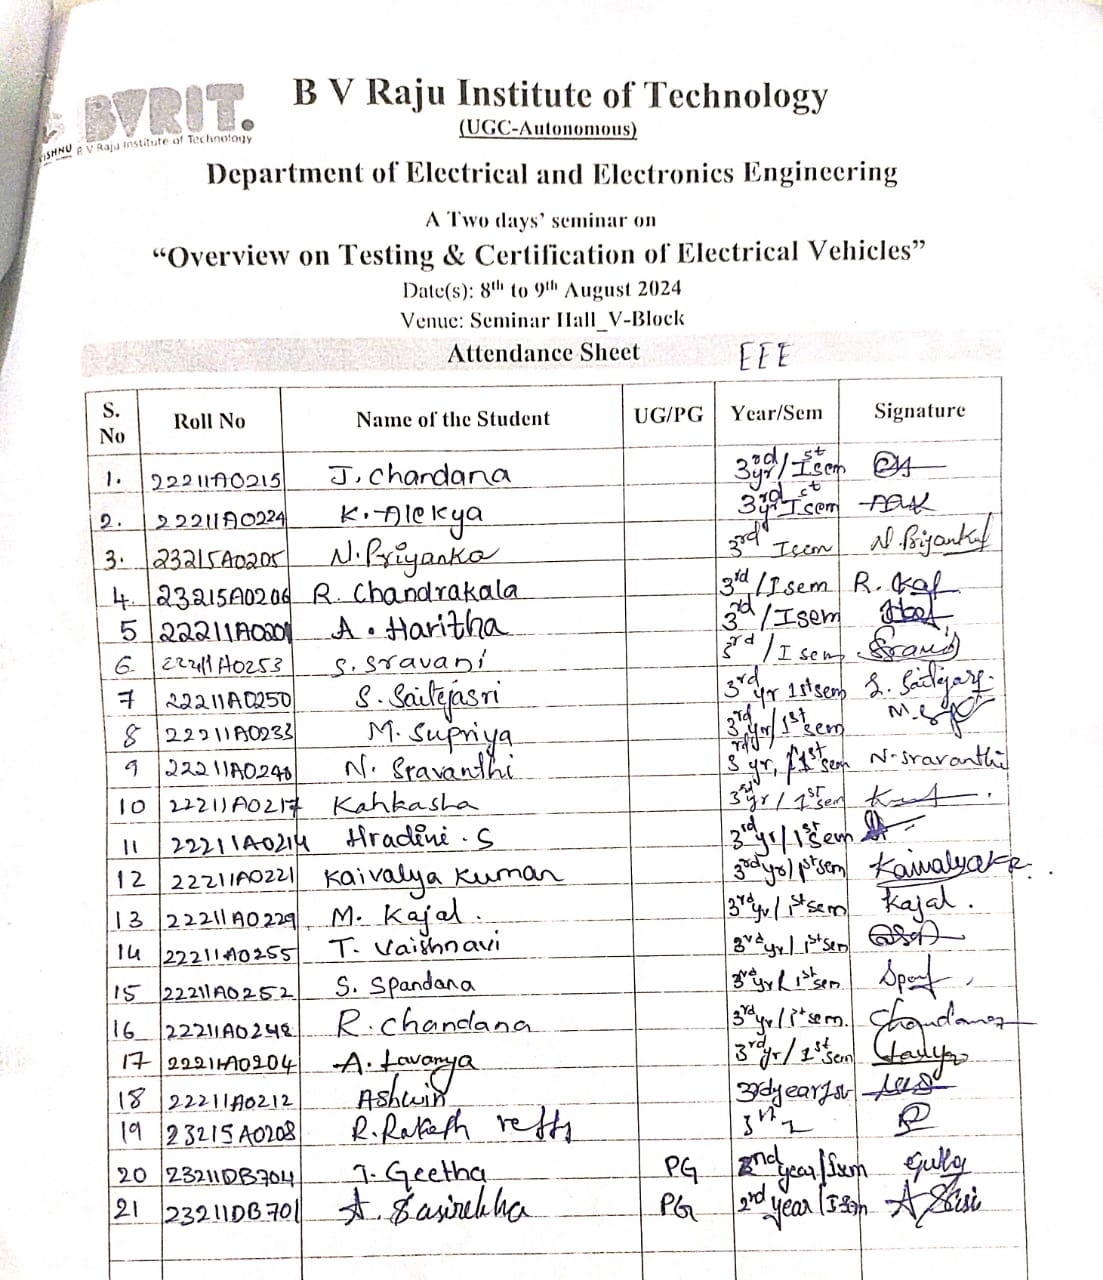 BVRIT.
VISHNU B V Raju Institute of Technology
B V Raju Institute of Technology
(UGC-Autonomous)
Department of Electrical and Electronics Engineering
A Two days’ seminar on
“Overview on Testing & Certification of Electrical Vehicles”
Date(s): 8th to 9th August 2024
Venue: Seminar Hall_V-Block
Attendance Sheet EEE
S. No Roll No Name of the Student UG/PG Year/Sem Signature
1. 22211A0215 J. Chandana 3rd yr/Ist sem
2. 22211A0224 K. Alekya 3rd yr Ist sem
3. 23215A0205 N. Priyanka 3rd Isem N. Priyanka
4. 23215A0206 R. Chandrakala 3rd/Isem R.
5 22211A0201 A. Haritha 3rd/Isem
6. 22211A0253 S. Sravani 3rd/Isem Sravani
7 22211A0250 S. Saitejasri 3rd yr 1st sem S. Saitejasri
8 22211A0233 M. Supriya 3rd yr/1st sem
9 22211A0240 N. Sravanthi 3rd yr, 1st sem N-sravanthi
10 22211A0217 Kahkasha 3rd yr/1st sem
11 22211A0214 Hradini.S 3rd yr/1st sem
12 22211A0221 Kaivalya Kumari 3rd yr/1st sem
13 22211A0229 M. Kajal. 3rd yr/1st sem Kajal.
14 22211A0255 T. Vaishnavi 3rd yr/1st sem
15 22211A0252 S. Spandana 3rd yr/1st sem
16 22211A0248 R. Chandana 3rd yr/1st sem.
17 22211A0204 A. Lavanya 3rd yr/1st sem
18 22211A0212 Ashwin 3rd year 1st
19 23215A0208 R. Rakesh reddy 3rd
20 23211DB704 J. Geetha PG 2nd year/Isem
21 23211DB701 A. Sasirekha PG 2nd year/Isem A Sasi